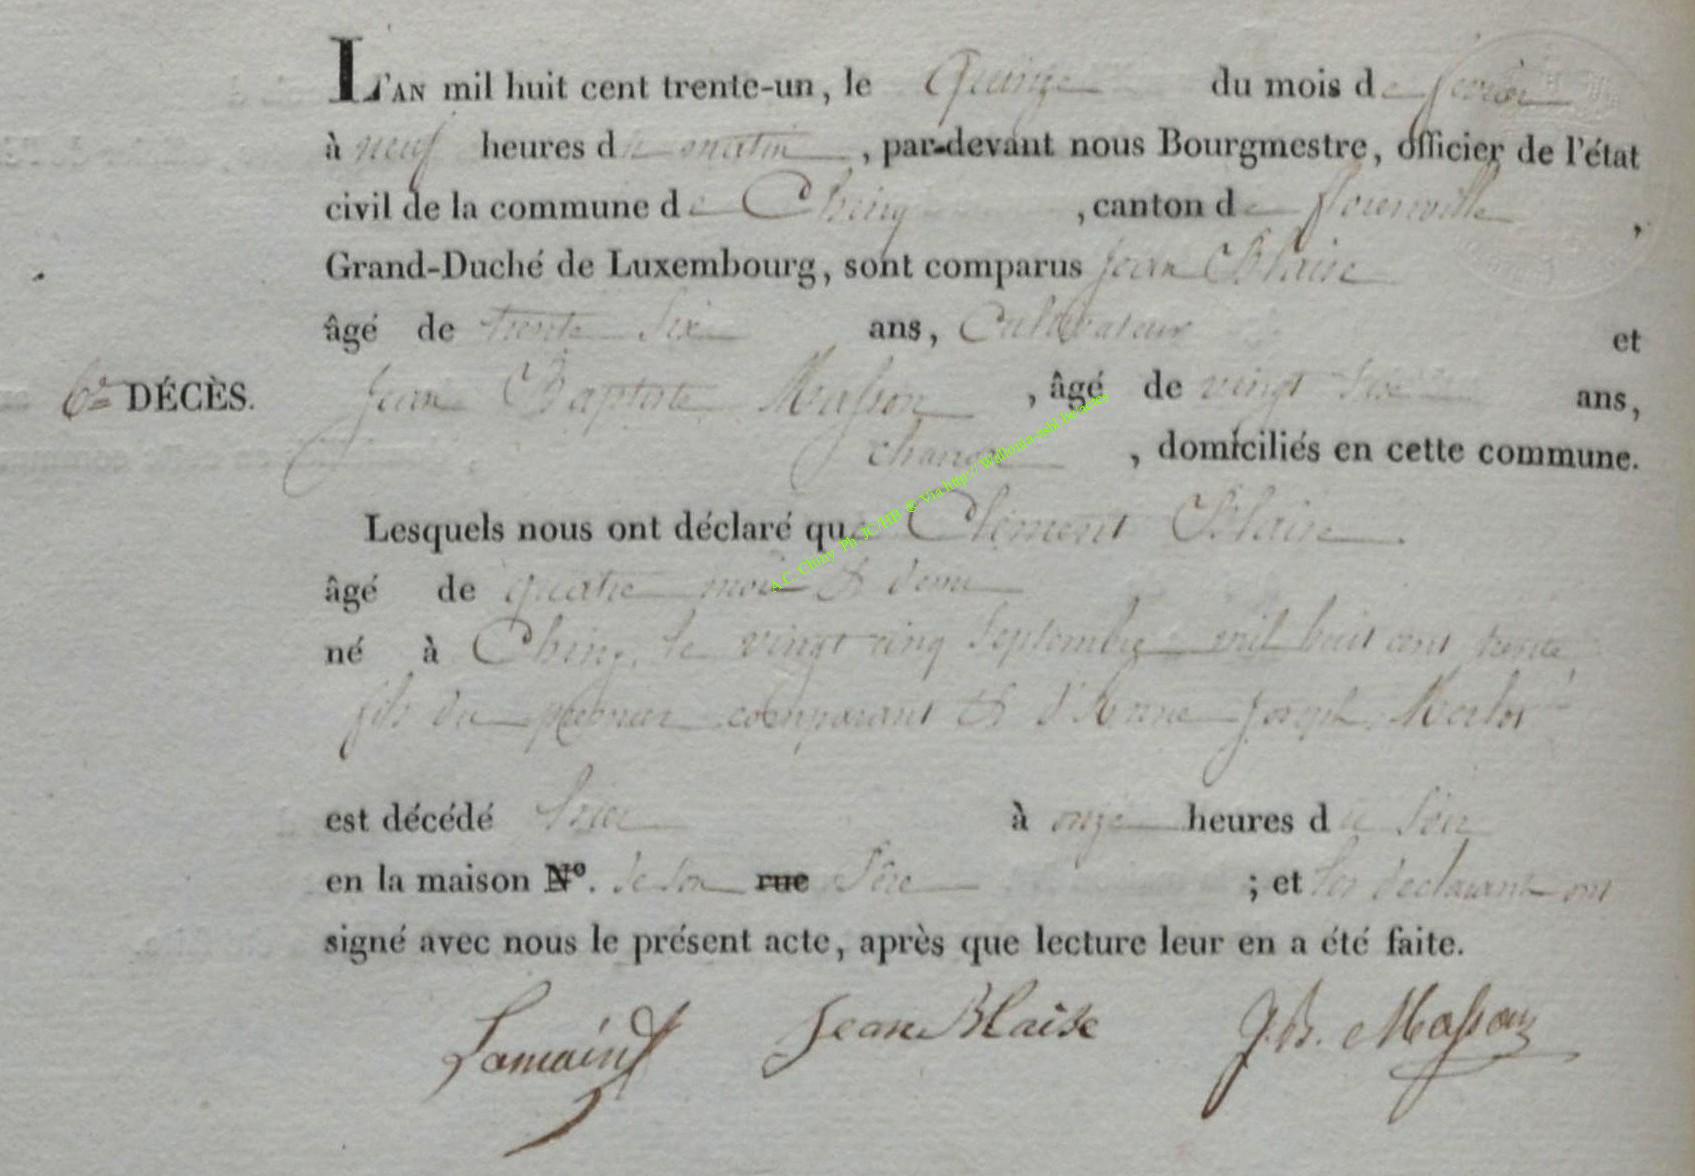 L'AN mil huit cent trente-un, le Quinze du mois de fevrier
à neuf heures du matin, par-devant nous Bourgmestre, officier de l'état
civil de la commune de Chiny, canton de florenville,
Grand-Duché de Luxembourg, sont comparus jean Blaise
âgé de trente six ans, Cultivateur et
6e DÉCÈS. Jean Baptiste Masson, âgé de vingt six ans,
, domiciliés en cette commune.
A.C. Chiny Ph. JC HB & Via http://
Lesquels nous ont déclaré que Clément Blaise
âgé de quatre mois & demi
né à Chiny, le vingt cinq Septembre mil huit cent trente,
fils du premier comparant & d'Anne joseph Merlot
est décédé hier à onze heures du Soir
en la maison N°. de son rue Père ; et les déclarants ont
signé avec nous le présent acte, après que lecture leur en a été faite.
Jean Blaise J.B. Masson